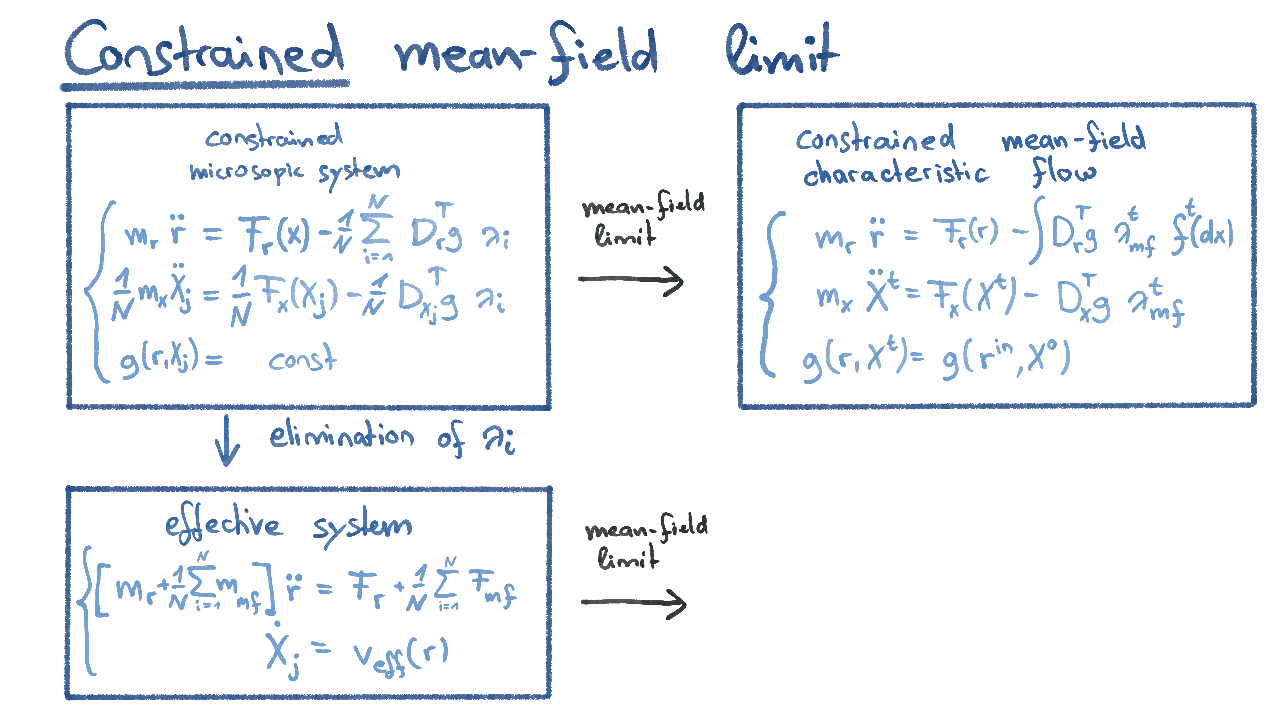 Constrained mean-field limit
constrained
microsopic system
m_r r̈ = F_r(x) - 1/N ∑_{i=1}^N D_r^T g λ_i
1/N m_x Ẍ_j = 1/N F_x(X_j) - 1/N D_{x_j}^T g λ_i
g(r,X_j) = const
mean-field
limit
constrained mean-field
characteristic flow
m_r r̈ = F_r(r) - ∫ D_r^T g λ_mf^t f^t(dx)
m_x Ẍ^t = F_x(X^t) - D_x^T g λ_mf^t
g(r, X^t) = g(r^in, X^0)
elimination of λ_i
effective system
[m_r + 1/N ∑_{i=1}^N m_mf] r̈ = F_r + 1/N ∑_{i=1}^N F_mf
Ẋ_j = v_eff(r)
mean-field
limit